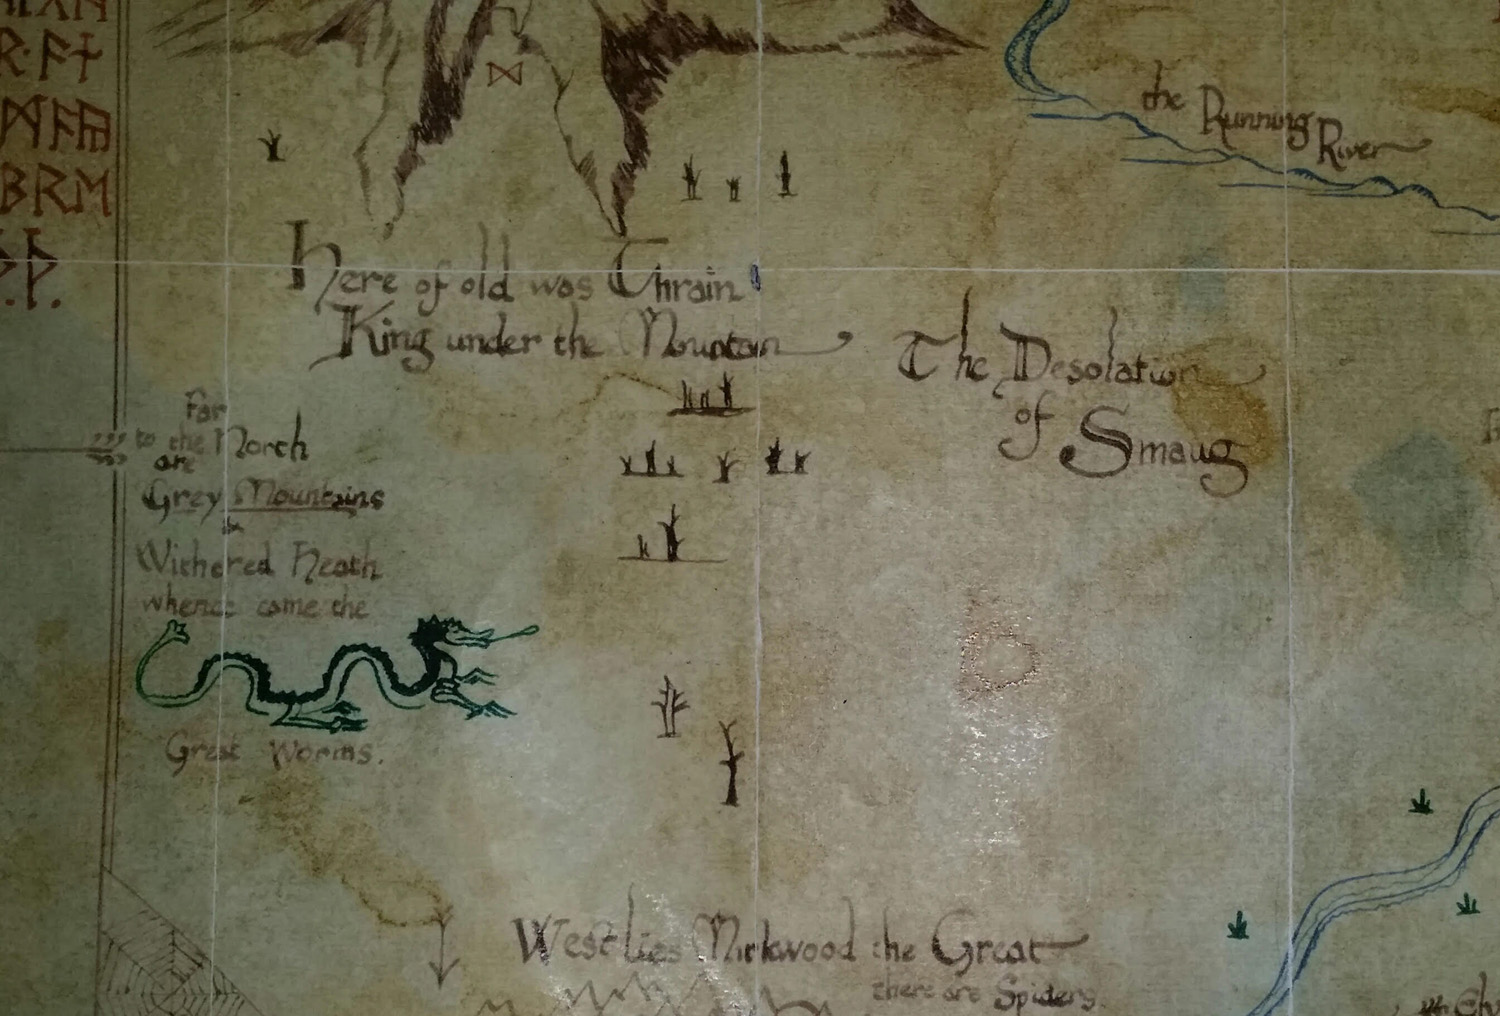 ᚱ·ᚨᚾ
ᛞᚫᚪ
ᛒᚱᛖ
the Running
River
Here of old was Thrain
King under the Mountain
The Desolation
of Smaug
Far
to the North
are
Grey Mountains
&
Withered Heath
whence came the
Great Worms.
West lies Mirkwood the Great
there are Spiders.